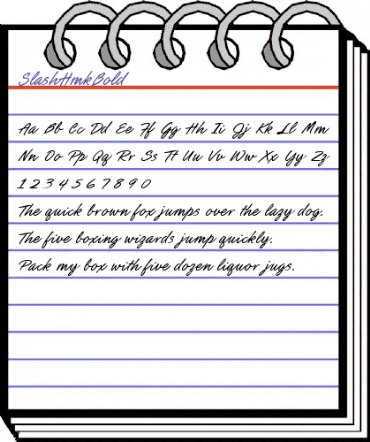 SlashHmkBold
Aa Bb Cc Dd Ee Ff Gg Hh Ii Jj Kk Ll Mm
Nn Oo Pp Qq Rr Ss Tt Uu Vv Ww Xx Yy Zz
1 2 3 4 5 6 7 8 9 0
The quick brown fox jumps over the lazy dog.
The five boxing wizards jump quickly.
Pack my box with five dozen liquor jugs.